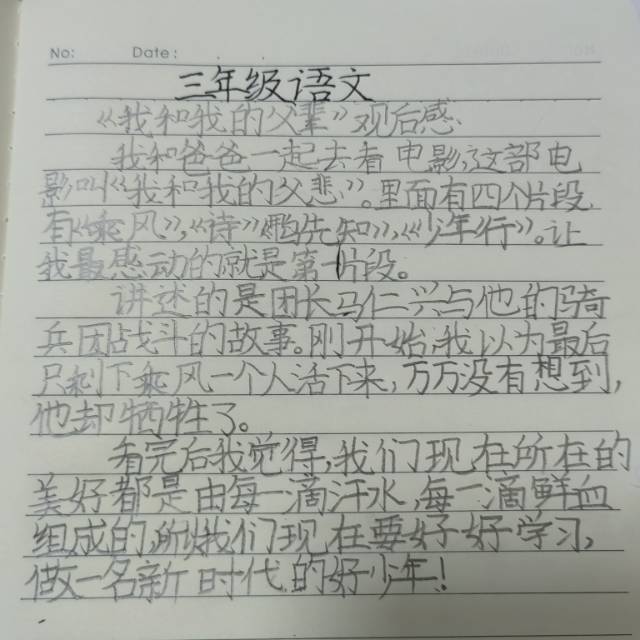 No: Date:
三年级语文
《我和我的父辈》观后感
我和爸爸一起去看电影这部电
影叫《我和我的父悲》。里面有四个片段
有《乘风》,《诗》《鸭先知》,《少年行》。让
我最感动的就是第1片段。
讲述的是团长马仁兴与他的骑
兵团战斗的故事。刚开始我以为最后
只剩下乘风一个人活下来,万万没有想到,
他却牺牲了。
看完后我觉得,我们现在所在的
美好都是由每一滴汗水,每一滴鲜血
组成的,所以我们现在要好好学习,
做一名新时代的好少年!